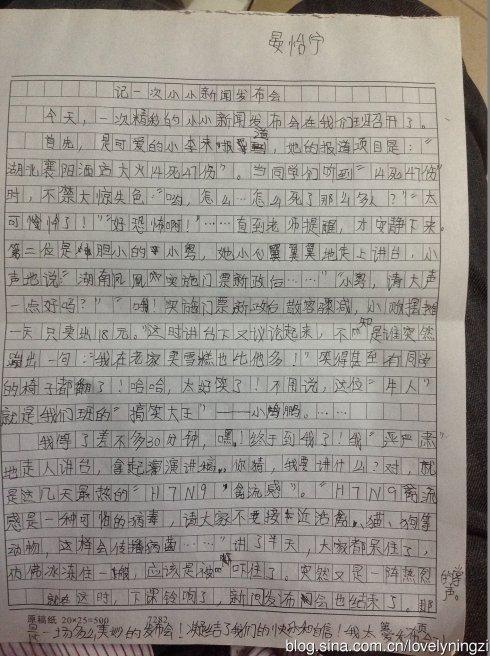 晏怡宁
记一次小小新闻发布会
今天，一次精彩的小小新闻发布会在我们班召开了。
首先，是可爱的小李来报道，她的报道项目是："
湖北襄阳酒店大火14死47伤"。当同学们听到"14死47伤"
时，不禁大惊失色："哟，怎么…怎么死了那么多人？""太
可惜了！""好恐怖啊！"……直到老师提醒，才安静下来。
第二位是胆小的小粤，她小心翼翼地走上讲台，小
声地说："湖南凤凰实施门票新政后……""小粤，请大声
一点好吗？""哦！实施门票新政后散客骤减，小贩
一天只卖出18元。"这时讲台下又议论起来，不知是谁突然
蹦出一句："我在老家卖雪糕也比他多！"笑得甚至有同学
的椅子都翻了！哈哈，太好笑了！不用说，这位"牛人"
就是我们班的"搞笑大王"——小鹏。……
我等了差不多30分钟，嘿！终于到我了！我"严严肃肃"
地走入讲台，拿起演讲稿，你猜，我要讲什么？对，就
是这几天最热的"H7N9"禽流感"。"H7N9禽流
感是一种可怕的病毒，请大家不要接近活禽、猫、狗等
动物，这样会传播病菌……"讲了半天，大家都呆住了，
仿佛冰冻住一般，应该是被吓住了。突然又是一阵热烈的掌声。
就在这时，下课铃响了，新闻发布会也结束了。那
原稿纸 20×25=500 7282 第 页
是一场多么美妙的发布会！凝结了我们的快乐和自信！我太
blog.sina.com.cn/lovelyningzi